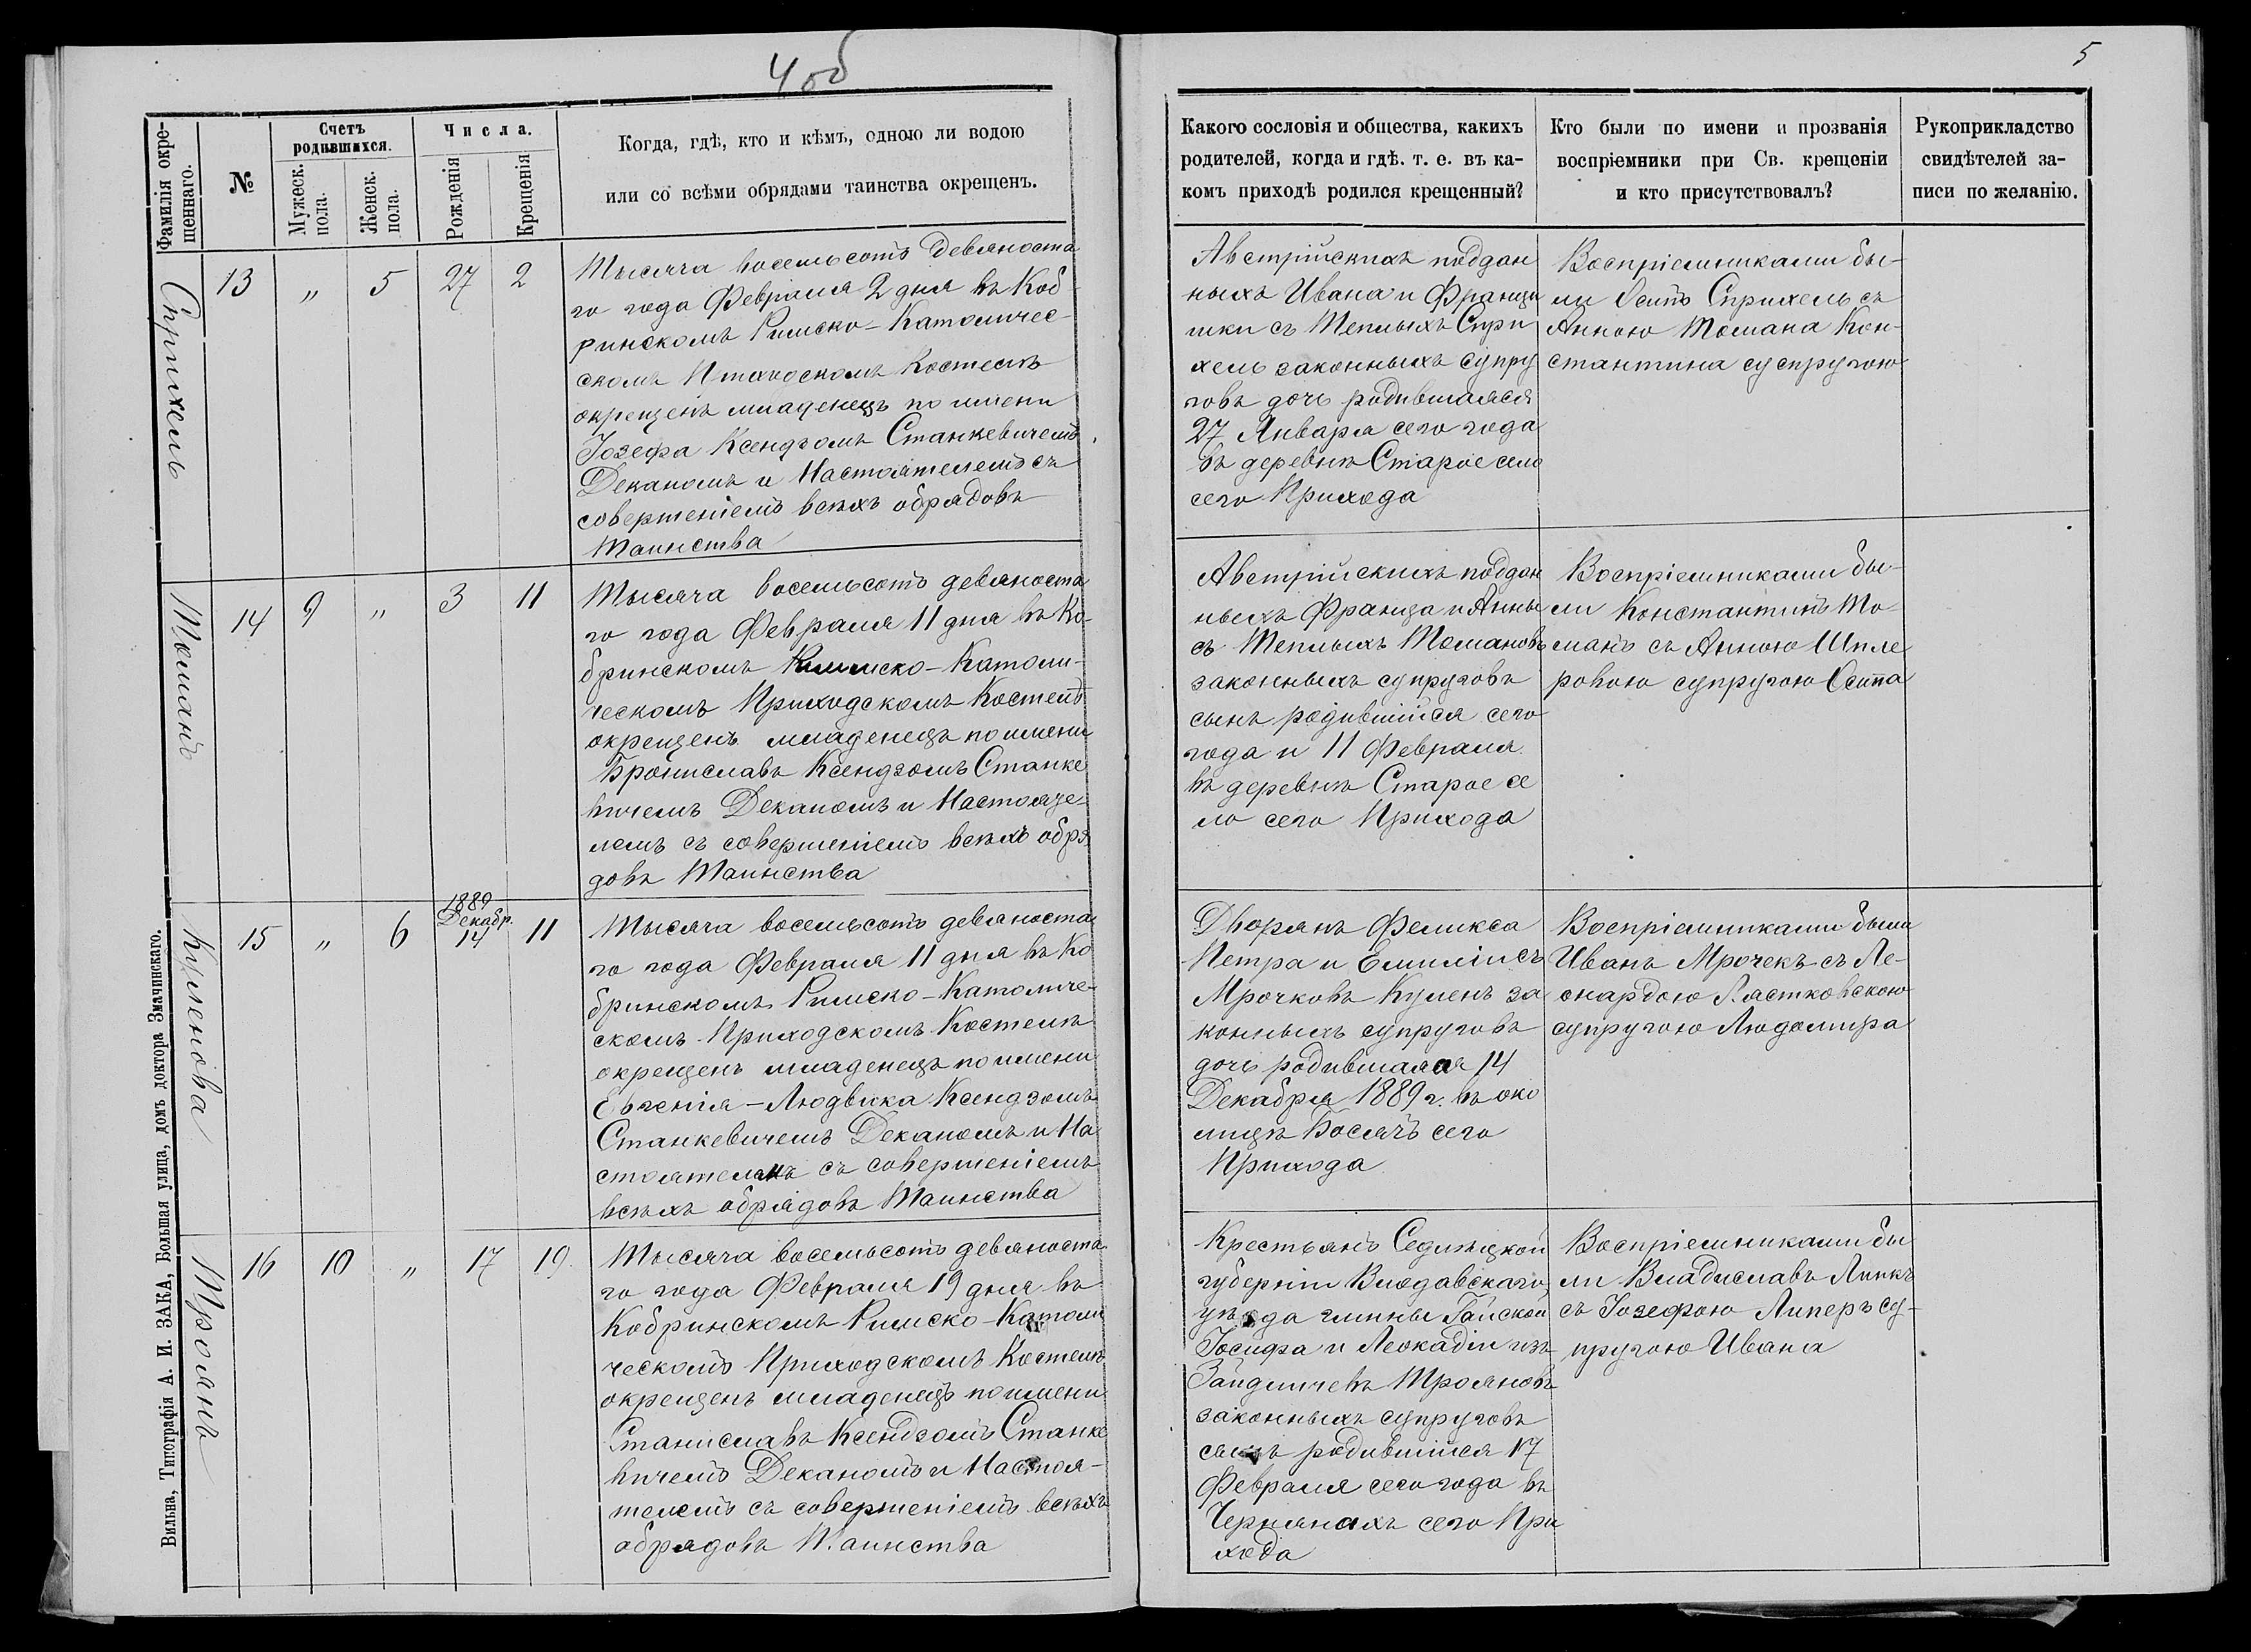 4 об
5
Фамилія окре-
щеннаго.
№
Счетъ
родившихся.
Мужеск.
пола.
Женск.
пола.
Числа.
Рожденія
Крещенія
Когда, гдѣ, кто и кѣмъ, одною ли водою
или со всѣми обрядами таинства окрещенъ.
Какого сословія и общества, какихъ
родителей, когда и гдѣ. т. е. въ ка-
комъ приходѣ родился крещенный?
Кто были по имени и прозванія
воспріемники при Св. крещеніи
и кто присутствовалъ?
Рукоприкладство
свидѣтелей за-
писи по желанію.
Сприхель
13 „ 5 27 2
Тысяча восемьсотъ девяноста
го года Февраля 2 дня въ Коб
ринскомъ Римско-Католичес-
скомъ Костелѣ
окрещенъ младенецъ по имени
Іозефа Ксендзомъ Станкевичемъ
Деканомъ и Настоятелемъ съ
совершеніемъ всѣхъ обрядовъ
Таинства
Австрійскихъ поддан
ныхъ Ивана и Францы
шки съ Теплыхъ Спри
хель законныхъ супру
говъ дочь родившаяся
27 Января сего года
въ деревнѣ Старое село
сего Прихода
Воспріемниками бы-
ли Осипъ Сприхель съ
Анною Томана Кон-
стантина суспругою
Томанъ
14 9 „ 3 11
Тысяча восемьсотъ девяноста
го года Февраля 11 дня въ Ко-
бринскомъ Римско-Католи-
ческомъ Приходскомъ Костелѣ
окрещенъ младенецъ по имени
Брониславъ Ксендзомъ Станке
вичемъ Деканомъ и Настояте
лемъ съ совершеніемъ всѣхъ обря
довъ Таинства
Австрійскихъ поддан
ныхъ Франца и Анны
съ Теплыхъ Томановъ
законныхъ супруговъ
сынъ родившійся сего
года и 11 Февраля
въ деревнѣ Старое се
ло сего Прихода
Воспріемниками бы-
ли Константинъ То-
манъ съ Анною Шпле
ровою супругою Осипа
Куленова
15 „ 6 1889 Декабр. 14 11
Тысяча восемьсотъ девяноста
го года Февраля 11 дня въ Ко
бринскомъ Римско-Католиче-
скомъ Приходскомъ Костелѣ
окрещенъ младенецъ по имени
Евгенія-Людвика Ксендзомъ
Станкевичемъ Деканомъ и На
стоятелемъ съ совершеніемъ
всѣхъ обрядовъ Таинства
Дворянъ Феликса
Петра и Емиліи съ
Мрочковъ Куленъ за
конныхъ супруговъ
дочь родившаяся 14
Декабря 1889 г. въ око
лицѣ Босячъ сего
Прихода
Воспріемниками были
Иванъ Мрочекъ съ Ле-
онардою Лястковскою
супругою Людомира
Троянъ
16 10 „ 17 19
Тысяча восемьсотъ девяноста
го года Февраля 19 дня въ
Кобринскомъ Римско-Католи
ческомъ Приходскомъ Костелѣ
окрещенъ младенецъ по имени
Станиславъ Ксендзомъ Станке
вичемъ Деканомъ и Настоя-
телемъ съ совершеніемъ всѣхъ
обрядовъ Таинства
Крестьянъ Седлецкой
губерніи Влодавскаго
уѣзда гмины Гайской
Іосифа и Леокадіи изъ
Зайдличевъ Трояновъ
законныхъ супруговъ
сынъ родившійся 17
Февраля сего года въ
Чернянахъ сего При
хода
Воспріемниками бы
ли Владиславъ Линкъ
съ Іозефою Липеръ су-
пругою Ивана
Вильна, Типографія А. И. ЗАКА, Большая улица, домъ доктора Змачинскаго.